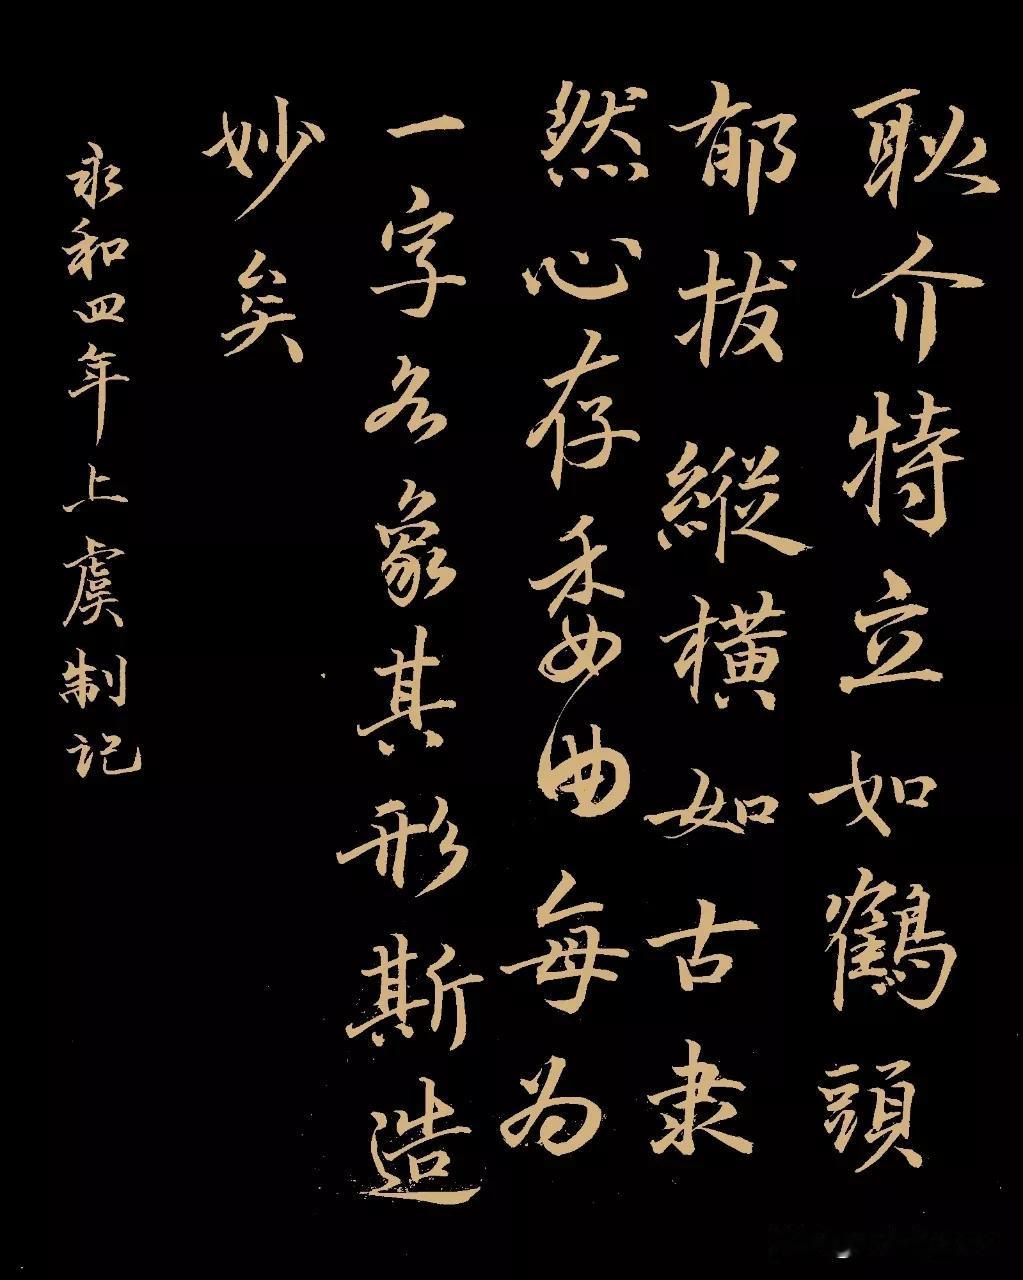 耿介特立如鶴頭
郁拔縱橫如古隶
然心存委曲每为
一字各象其形斯造
妙矣
永和四年上虞制记